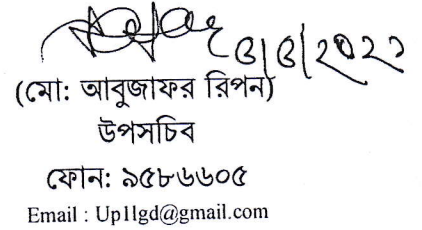 (মো: আবুজাফর রিপন)
উপসচিব
ফোন: ৯৫৮৬৬০৫
Email : Up1lgd@gmail.com